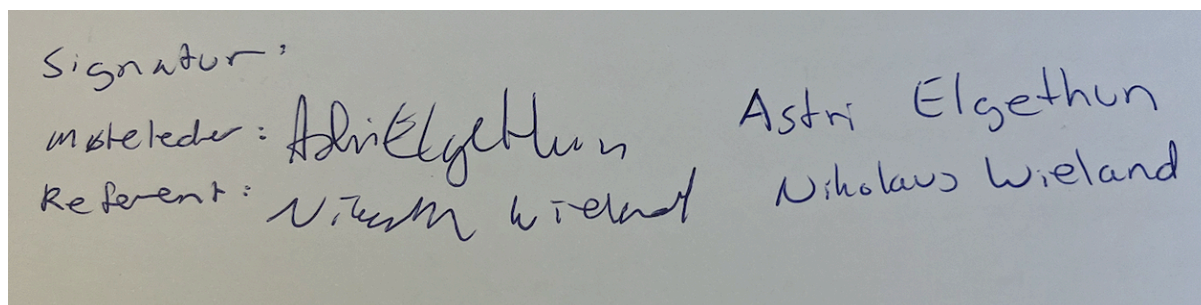 Signatur:
Møteleder: Astri Elgethun Astri Elgethun
Referent: Nikolaus Wieland Nikolaus Wieland